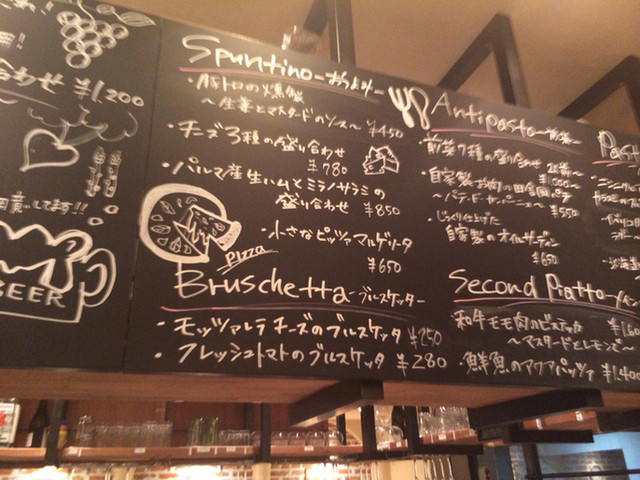 合わせ ¥1,200
BEER
Spuntino -おつまみ-
・豚トロの燻製
～生姜とマスタードのソース～ ¥450
・チーズ3種の盛り合わせ
¥780
・パルマ産生ハムとミラノサラミの
盛り合わせ ¥850
Pizza
・小さなピッツァ マルゲリータ
¥650
Bruschetta -ブルスケッター
・モッツァレラチーズのブルスケッタ ¥250
・フレッシュトマトのブルスケッタ ¥280
Antipasto -前菜-
・前菜7種の盛り合わせ
・自家製お肉の田舎風パテ
～パテ・ド・カンパーニュ～ ¥550
・じっくり仕上げた
自家製のオイルサーディン
¥650
Second Piatto
・和牛モモ肉のビステッカ
～マスタードとレモンで～
・鮮魚のアクアパッツァ ¥1,400